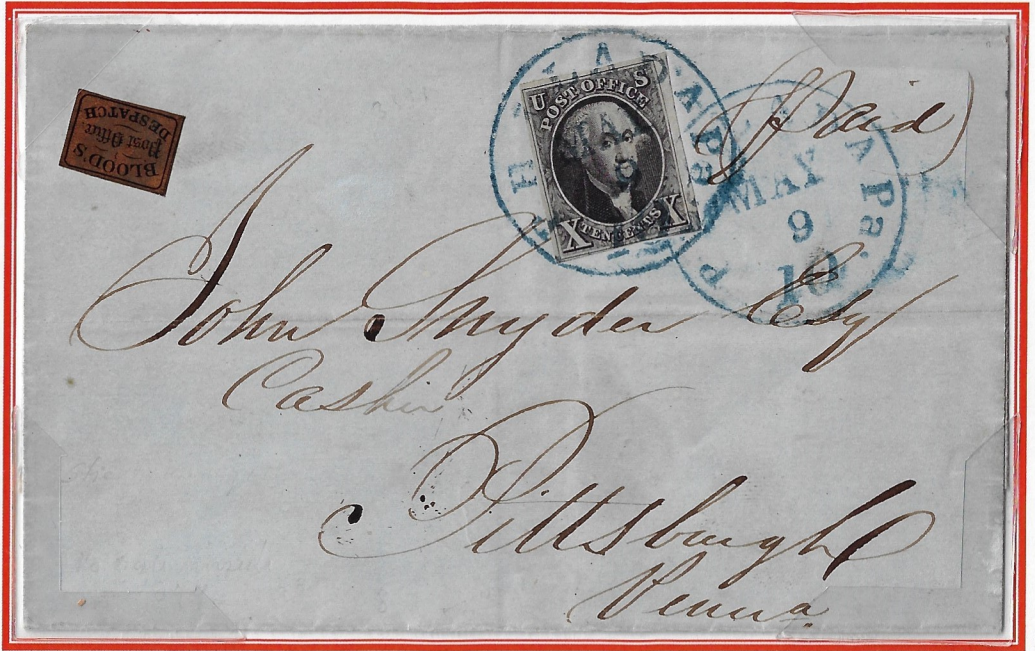 BLOOD'S
Post Office
DESPATCH
U S
POST OFFICE
X TEN CENTS X
PHILADA Pa.
MAY
9
PHILADA Pa.
MAY
9
10
Paid
John Snyder Esqr
Cashier
Pittsburgh
Penna